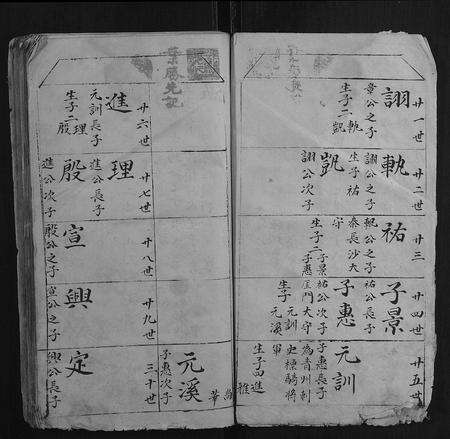 廿一世
詡
章公之子
生子二 軌 凱
廿二世
軌
詡公之子
生子祐
凱
詡公次子
廿三
祐
軌公之子
泰長沙太
守
生子二 子景 子惠
廿四世
子景
祐公長子
子惠
祐公次子
門大守
生子 元訓 元溪
廿五世
元訓
子惠長子
為青州刺
史標騎將
軍
生子四 進
元溪
子惠次子
廿六世
進
元訓長子
生子二 理 殷
廿七世
理
進公長子
殷
進公次子
廿八世
宣
殷公之子
廿九世
興
宣公之子
三十世
定
興公長子